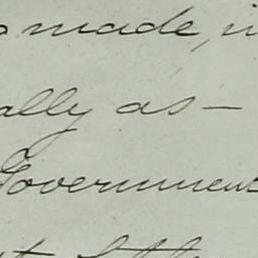 made, i
ally as —
Government